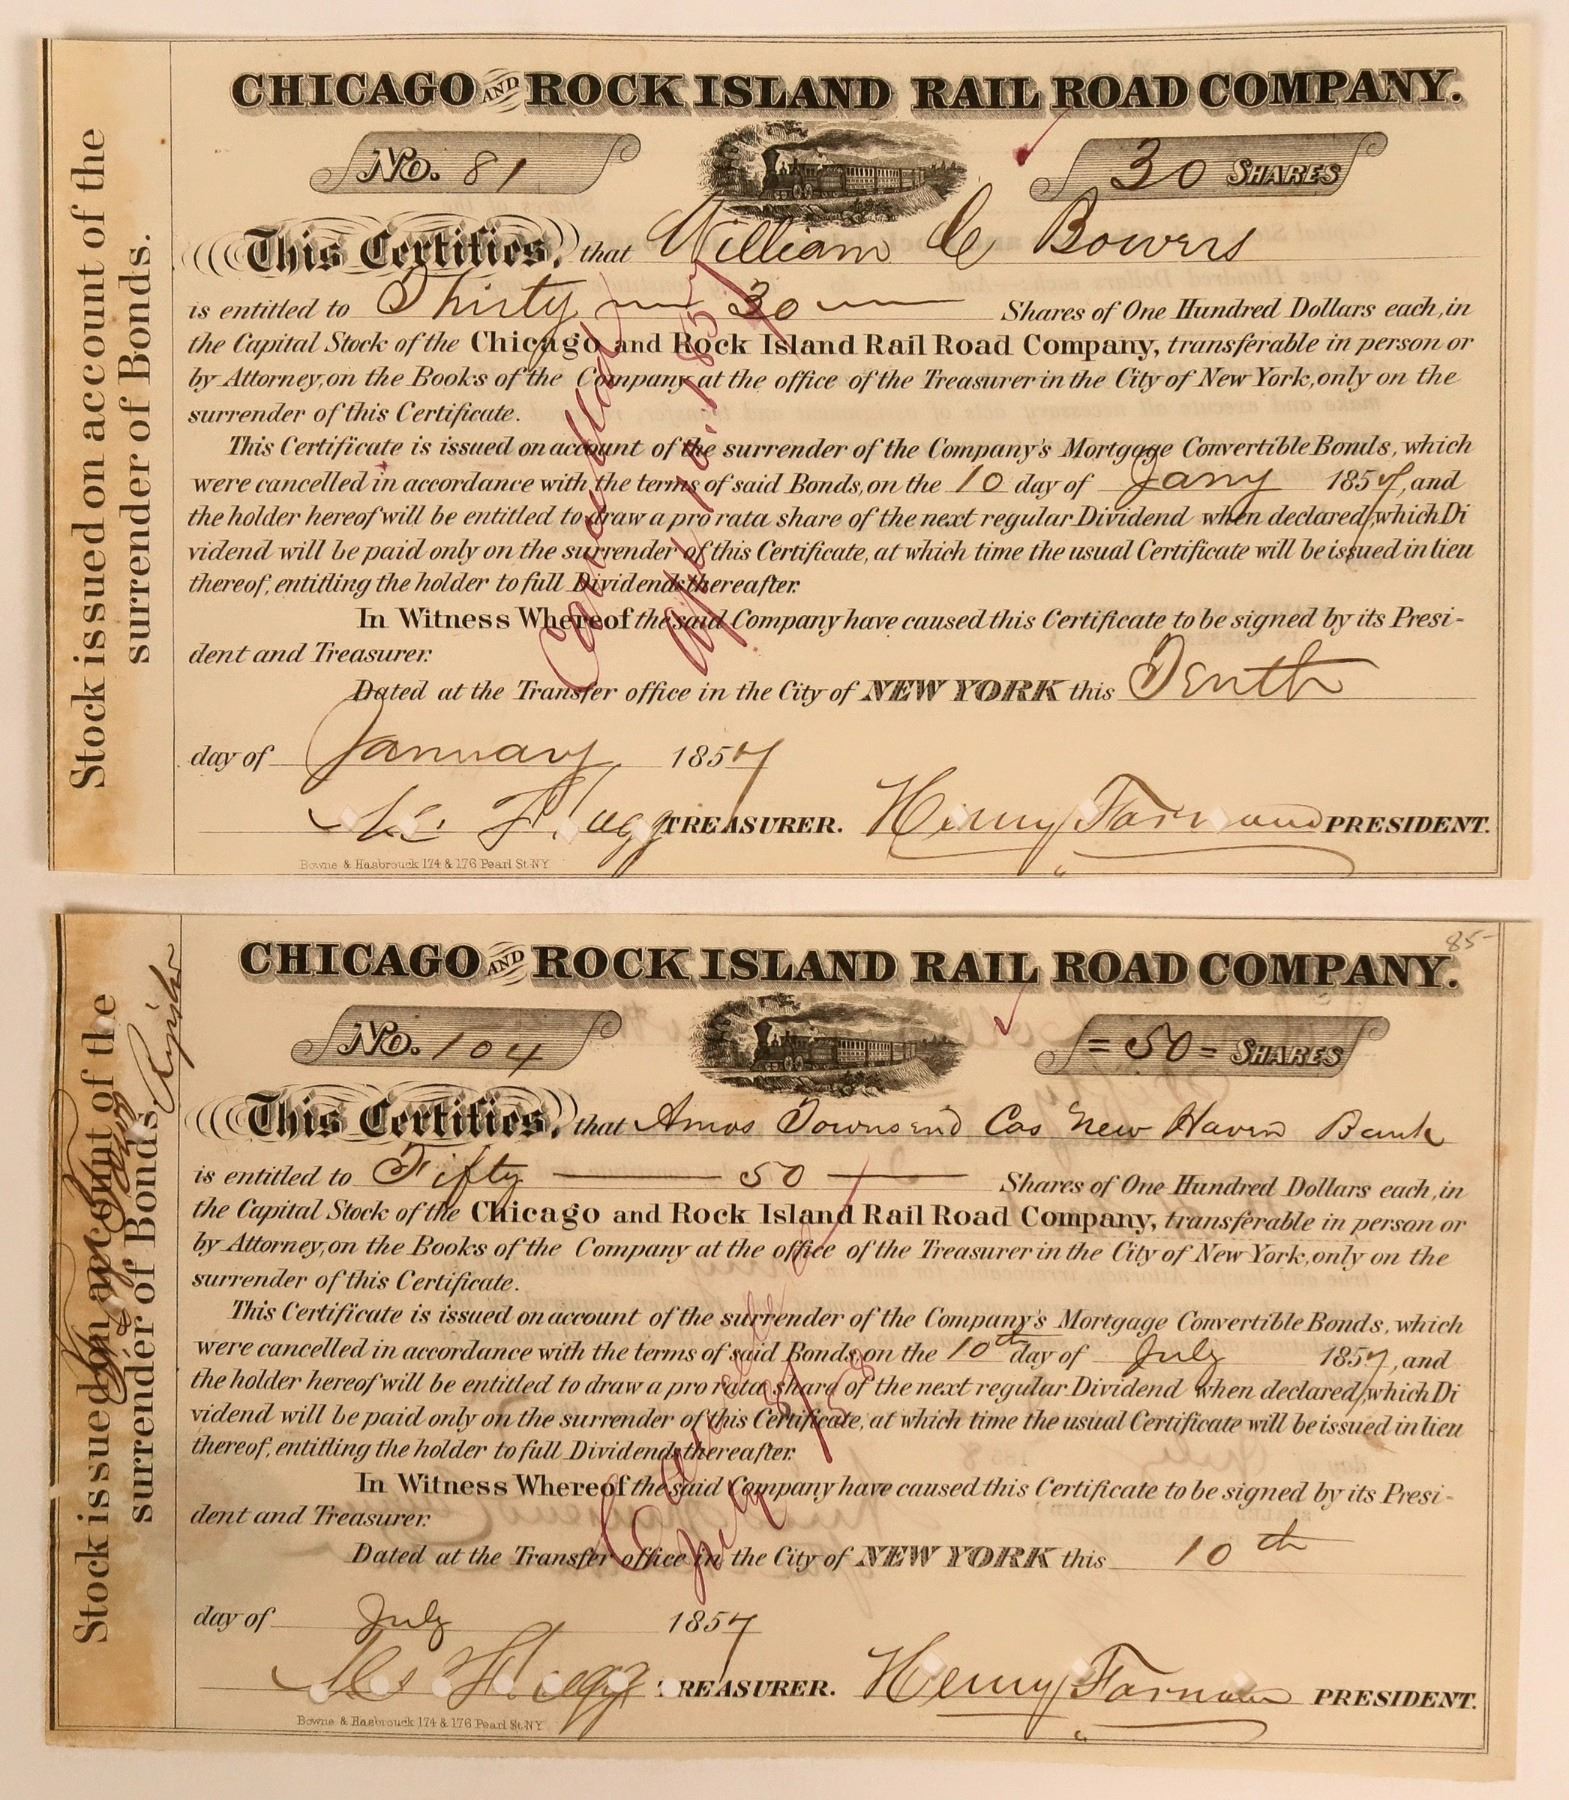 CHICAGO AND ROCK ISLAND RAIL ROAD COMPANY.
No. 81
30 SHARES
This Certifies, that William C Bowers
is entitled to Thirty 30 Shares of One Hundred Dollars each, in
the Capital Stock of the Chicago and Rock Island Rail Road Company, transferable in person or
by Attorney, on the Books of the Company at the office of the Treasurer in the City of New York, only on the
surrender of this Certificate.
This Certificate is issued on account of the surrender of the Company's Mortgage Convertible Bonds, which
were cancelled in accordance with the terms of said Bonds, on the 10 day of Jany 1857, and
the holder hereof will be entitled to draw a pro rata share of the next regular Dividend when declared, which Di
vidend will be paid only on the surrender of this Certificate, at which time the usual Certificate will be issued in lieu
thereof, entitling the holder to full Dividends thereafter.
In Witness Whereof the said Company have caused this Certificate to be signed by its Presi-
dent and Treasurer.
Dated at the Transfer office in the City of NEW YORK this Tenth
day of January 1857
TREASURER. Henry Farnam PRESIDENT.
Bowne & Hasbrouck 174 & 176 Pearl St. NY
Stock issued on account of the
surrender of Bonds.
Cancelled
85-
CHICAGO AND ROCK ISLAND RAIL ROAD COMPANY.
No. 104
=50= SHARES
This Certifies, that Amos Townsend Cas New Haven Bank
is entitled to Fifty 50 Shares of One Hundred Dollars each, in
the Capital Stock of the Chicago and Rock Island Rail Road Company, transferable in person or
by Attorney, on the Books of the Company at the office of the Treasurer in the City of New York, only on the
surrender of this Certificate.
This Certificate is issued on account of the surrender of the Company's Mortgage Convertible Bonds, which
were cancelled in accordance with the terms of said Bonds, on the 10th day of July 1857, and
the holder hereof will be entitled to draw a pro rata share of the next regular Dividend when declared, which Di
vidend will be paid only on the surrender of this Certificate, at which time the usual Certificate will be issued in lieu
thereof, entitling the holder to full Dividends thereafter.
In Witness Whereof the said Company have caused this Certificate to be signed by its Presi-
dent and Treasurer.
Dated at the Transfer office in the City of NEW YORK this 10th
day of July 1857
TREASURER. Henry Farnam PRESIDENT.
Bowne & Hasbrouck 174 & 176 Pearl St. NY
Stock issued on account of the
surrender of Bonds.
Cancelled